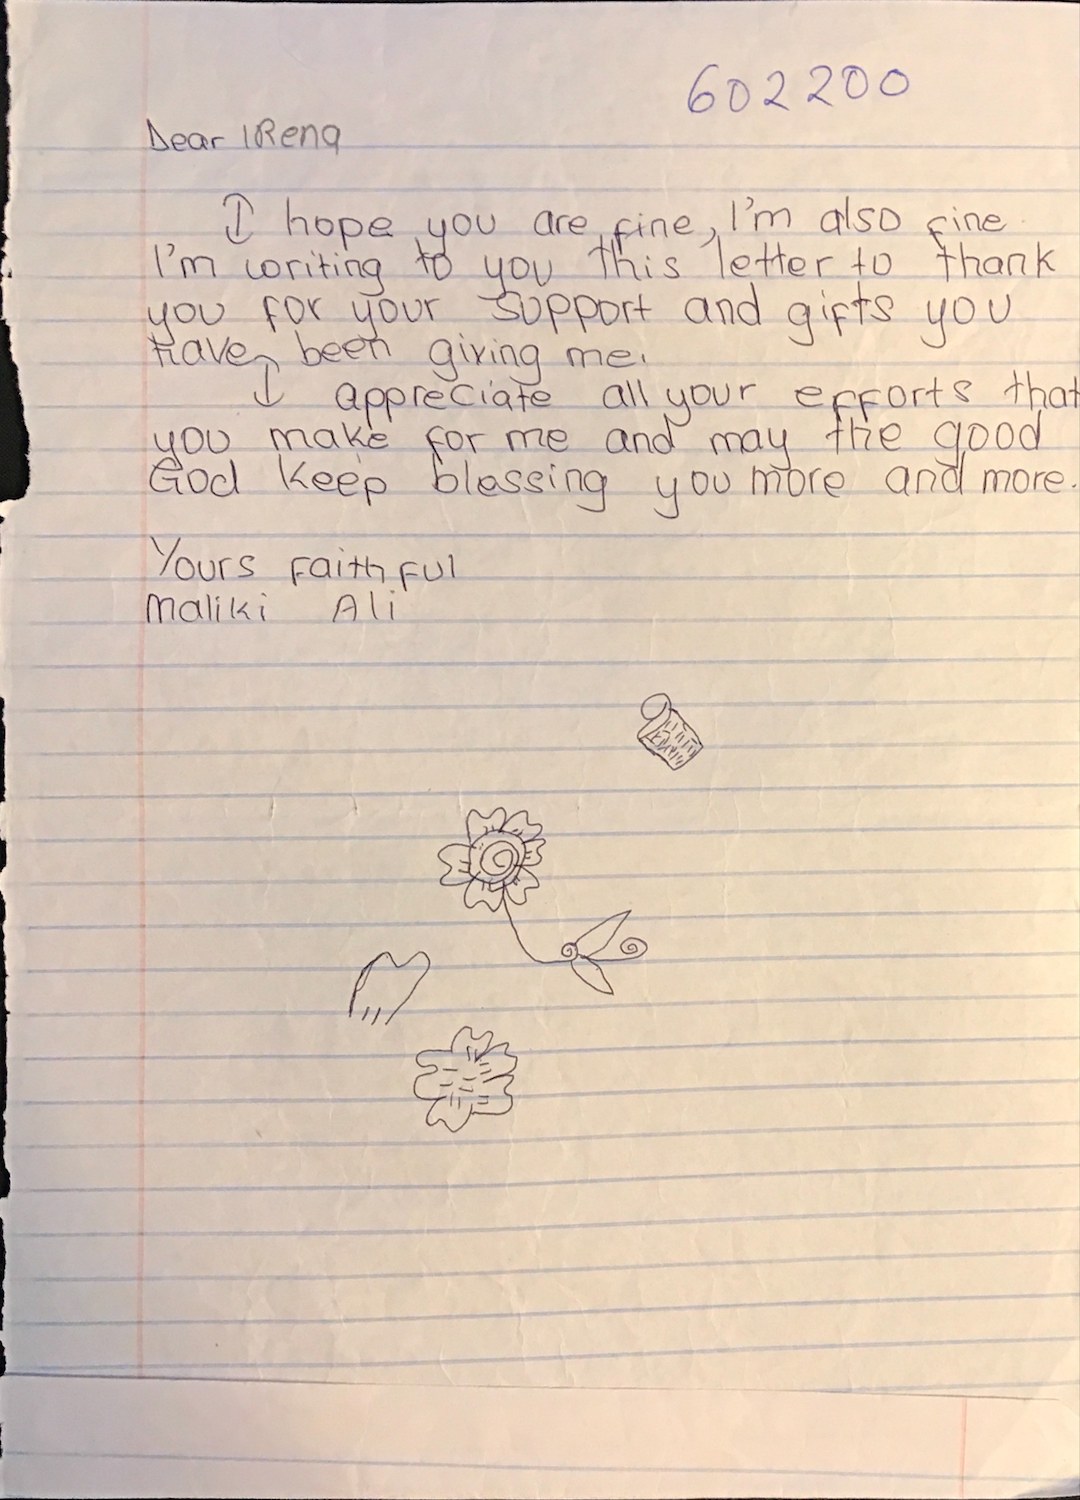 602200
Dear IRena
I hope you are fine, I'm also fine
I'm writing to you this letter to thank
you for your support and gifts you
have been giving me.
I appreciate all your efforts that
you make for me and may the good
God keep blessing you more and more.
Yours faithful
Maliki Ali